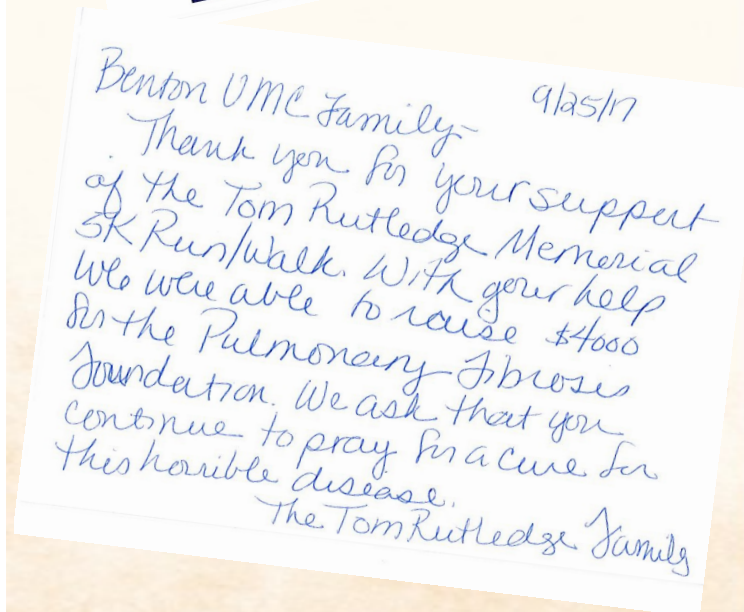 9/25/17
Benton UMC Family-
Thank you for your support
of the Tom Rutledge Memorial
5K Run/Walk. With your help
we were able to raise $4000
for the Pulmonary Fibrosis
Foundation. We ask that you
continue to pray for a cure for
this horrible disease.
The Tom Rutledge Family